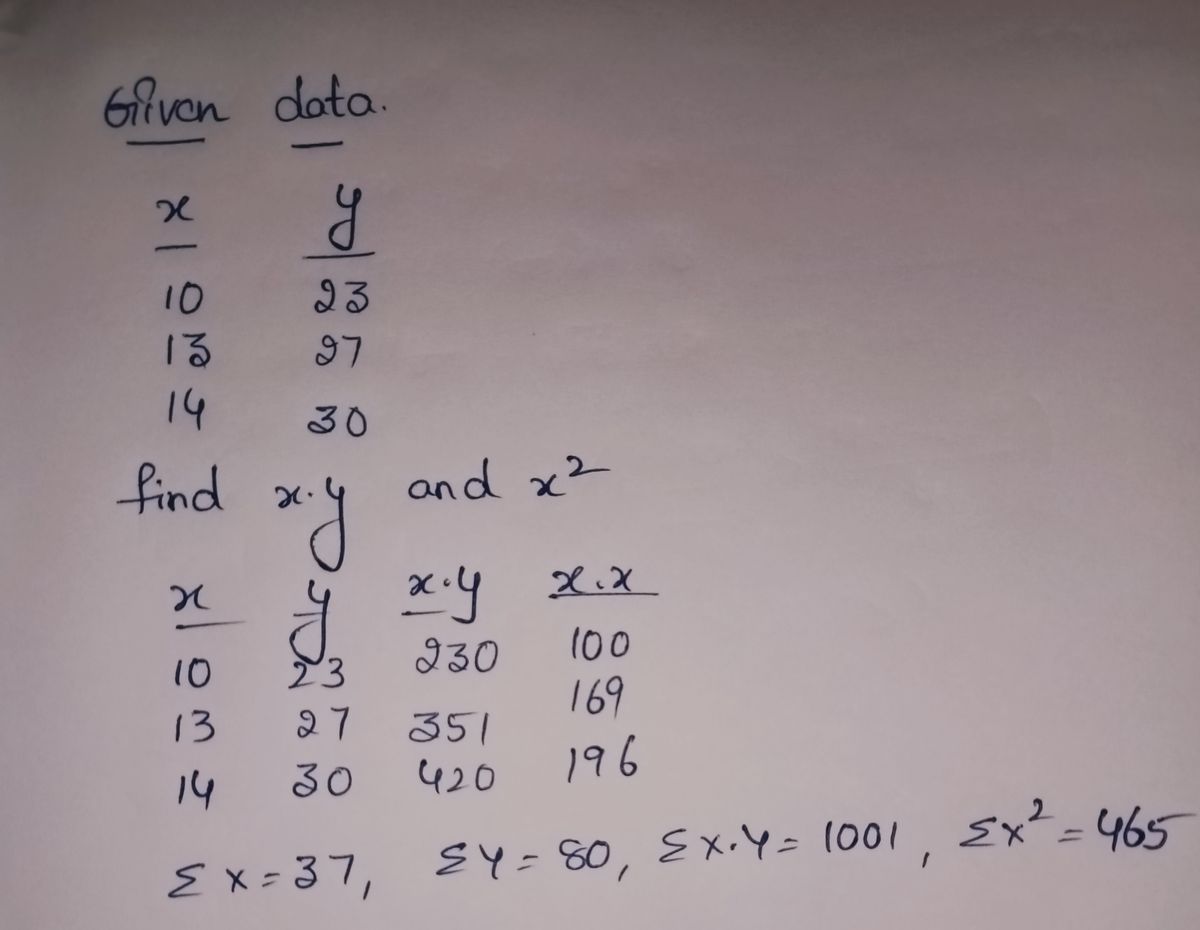 Given data.
x y
10 23
13 27
14 30
find x.y and x²
x y x.y x.x
10 23 230 100
13 27 351 169
14 30 420 196
Σx=37, Σy=80, Σx.y=1001, Σx²=465